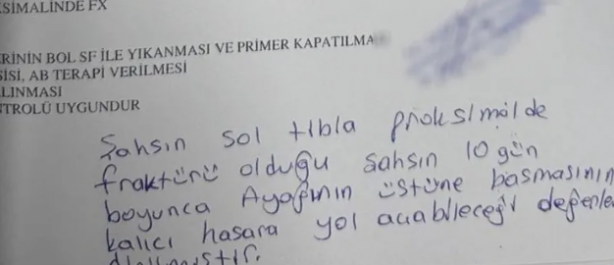 SİMALİNDE FX
ERİNİN BOL SF İLE YIKANMASI VE PRİMER KAPATILMA
İSİ, AB TERAPİ VERİLMESİ
LINMASI
NTROLÜ UYGUNDUR
Şahsın sol tibia proksimalde
fraktürü olduğu şahsın 10 gün
boyunca Ayağının üstüne basmasının
kalıcı hasara yol açabileceği değerle